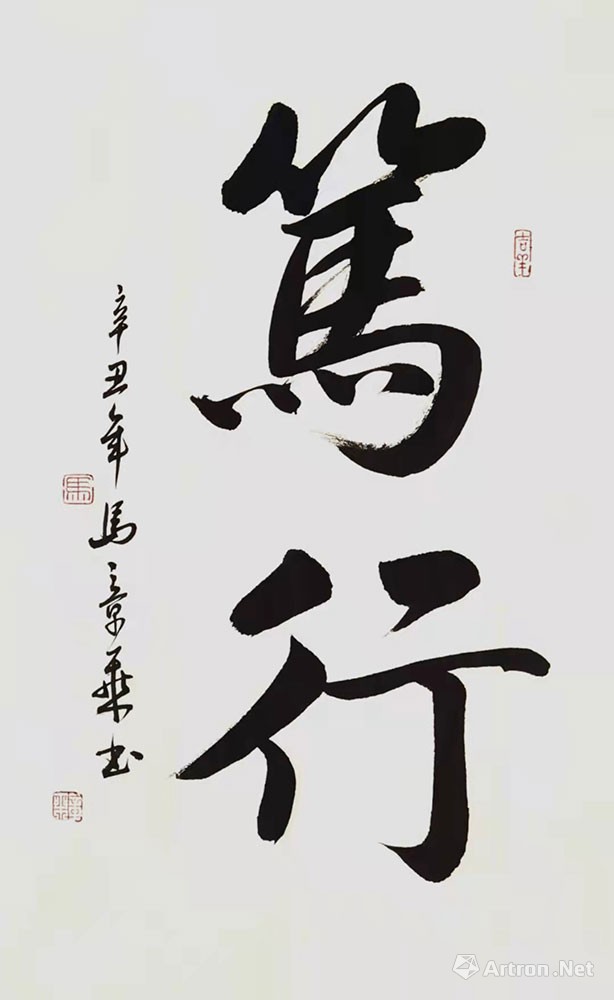 篤行
辛丑年馬章乘书
馬
Artron.Net